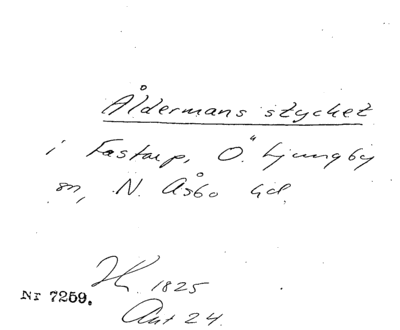 Åldermans stycket
i Fastarp, Ö. Ljungby
sn, N. Åsbo hd.
1825
Nr 7259.
Akt 24.